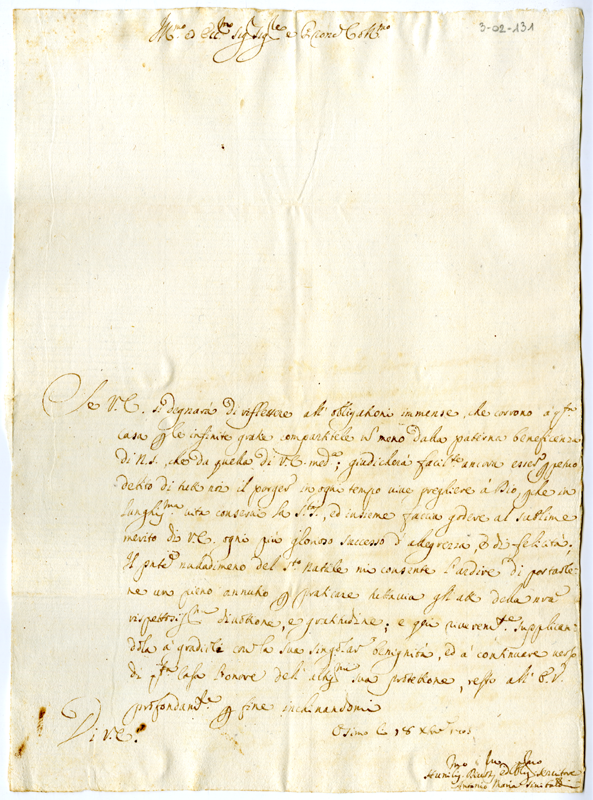 3-02-131
Ill.mo et Ecc.mo Sig. Sig.re e Pròne Col.mo
Se V.E. si degnarà di riflettere all' obligationi immense, che corrono a q.sta
casa p le infinite gratie compartitele nõ meno dalla paterna beneficenza
di N.S., che da quella di V.E. med.a; giudicherà facil.te ancora essere
debito di tutti noi il porger in ogni tempo vive preghiere à Dio, che in
lungh.ma vita conservi la S.tà S., ed insieme faccia godere al sublime
merito di V.E. ogni più glorioso successo d'allegrezza, e di felicità;
Il nudadimeno del S.to Natale mi consente l'ardire di portarle-
ne un pieno annuntio p praticare tuttavia gli atti della nr̃a
rispettosis.ma divotione, e gratitudine; e q riverent.e supplican-
dola à gradirli con la sua singolar benignità, ed à continuare verso
di q.sta Casa l'onore dell' alt.ma sua protettione, resto all' E.V.
profondam.te p fine inchinandomi
Di V.E.
Osimo li 18 Xbre
Humiliss. Devot. Oblig. Servitore
Antonio Maria Sinibaldi